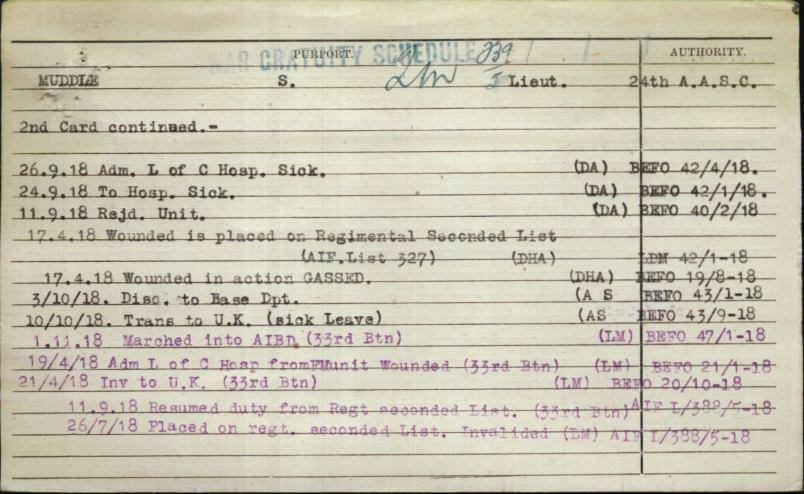 PURPORT. AUTHORITY.
WAR GRATUITY SCHEDULE 239
MUDDLE S. Lieut. 24th A.A.S.C.
2nd Card continued.-
26.9.18 Adm. L of C Hosp. Sick. (DA) BEFO 42/4/18.
24.9.18 To Hosp. Sick. (DA) BEFO 42/1/18.
11.9.18 Rejd. Unit. (DA) BEFO 40/2/18
17.4.18 Wounded is placed on Regimental Seconded List
(AIF.List 327) (DHA) LDN 42/1-18
17.4.18 Wounded in action GASSED. (DHA) BEFO 19/8-18
3/10/18. Disc. to Base Dpt. (A S BEFO 43/1-18
10/10/18. Trans to U.K. (sick Leave) (AS BEFO 43/9-18
1.11.18 Marched into AIBD (33rd Btn) (LM) BEFO 47/1-18
19/4/18 Adm L of C Hosp from unit Wounded (33rd Btn) (LM) BEFO 21/1-18
21/4/18 Inv to U.K. (33rd Btn) (LM) BEFO 20/10-18
11.9.18 Resumed duty from Regt seconded List. (33rd Btn) AIF L/388/5-18
26/7/18 Placed on regt. seconded List. Invalided (LM) AIF L/388/5-18